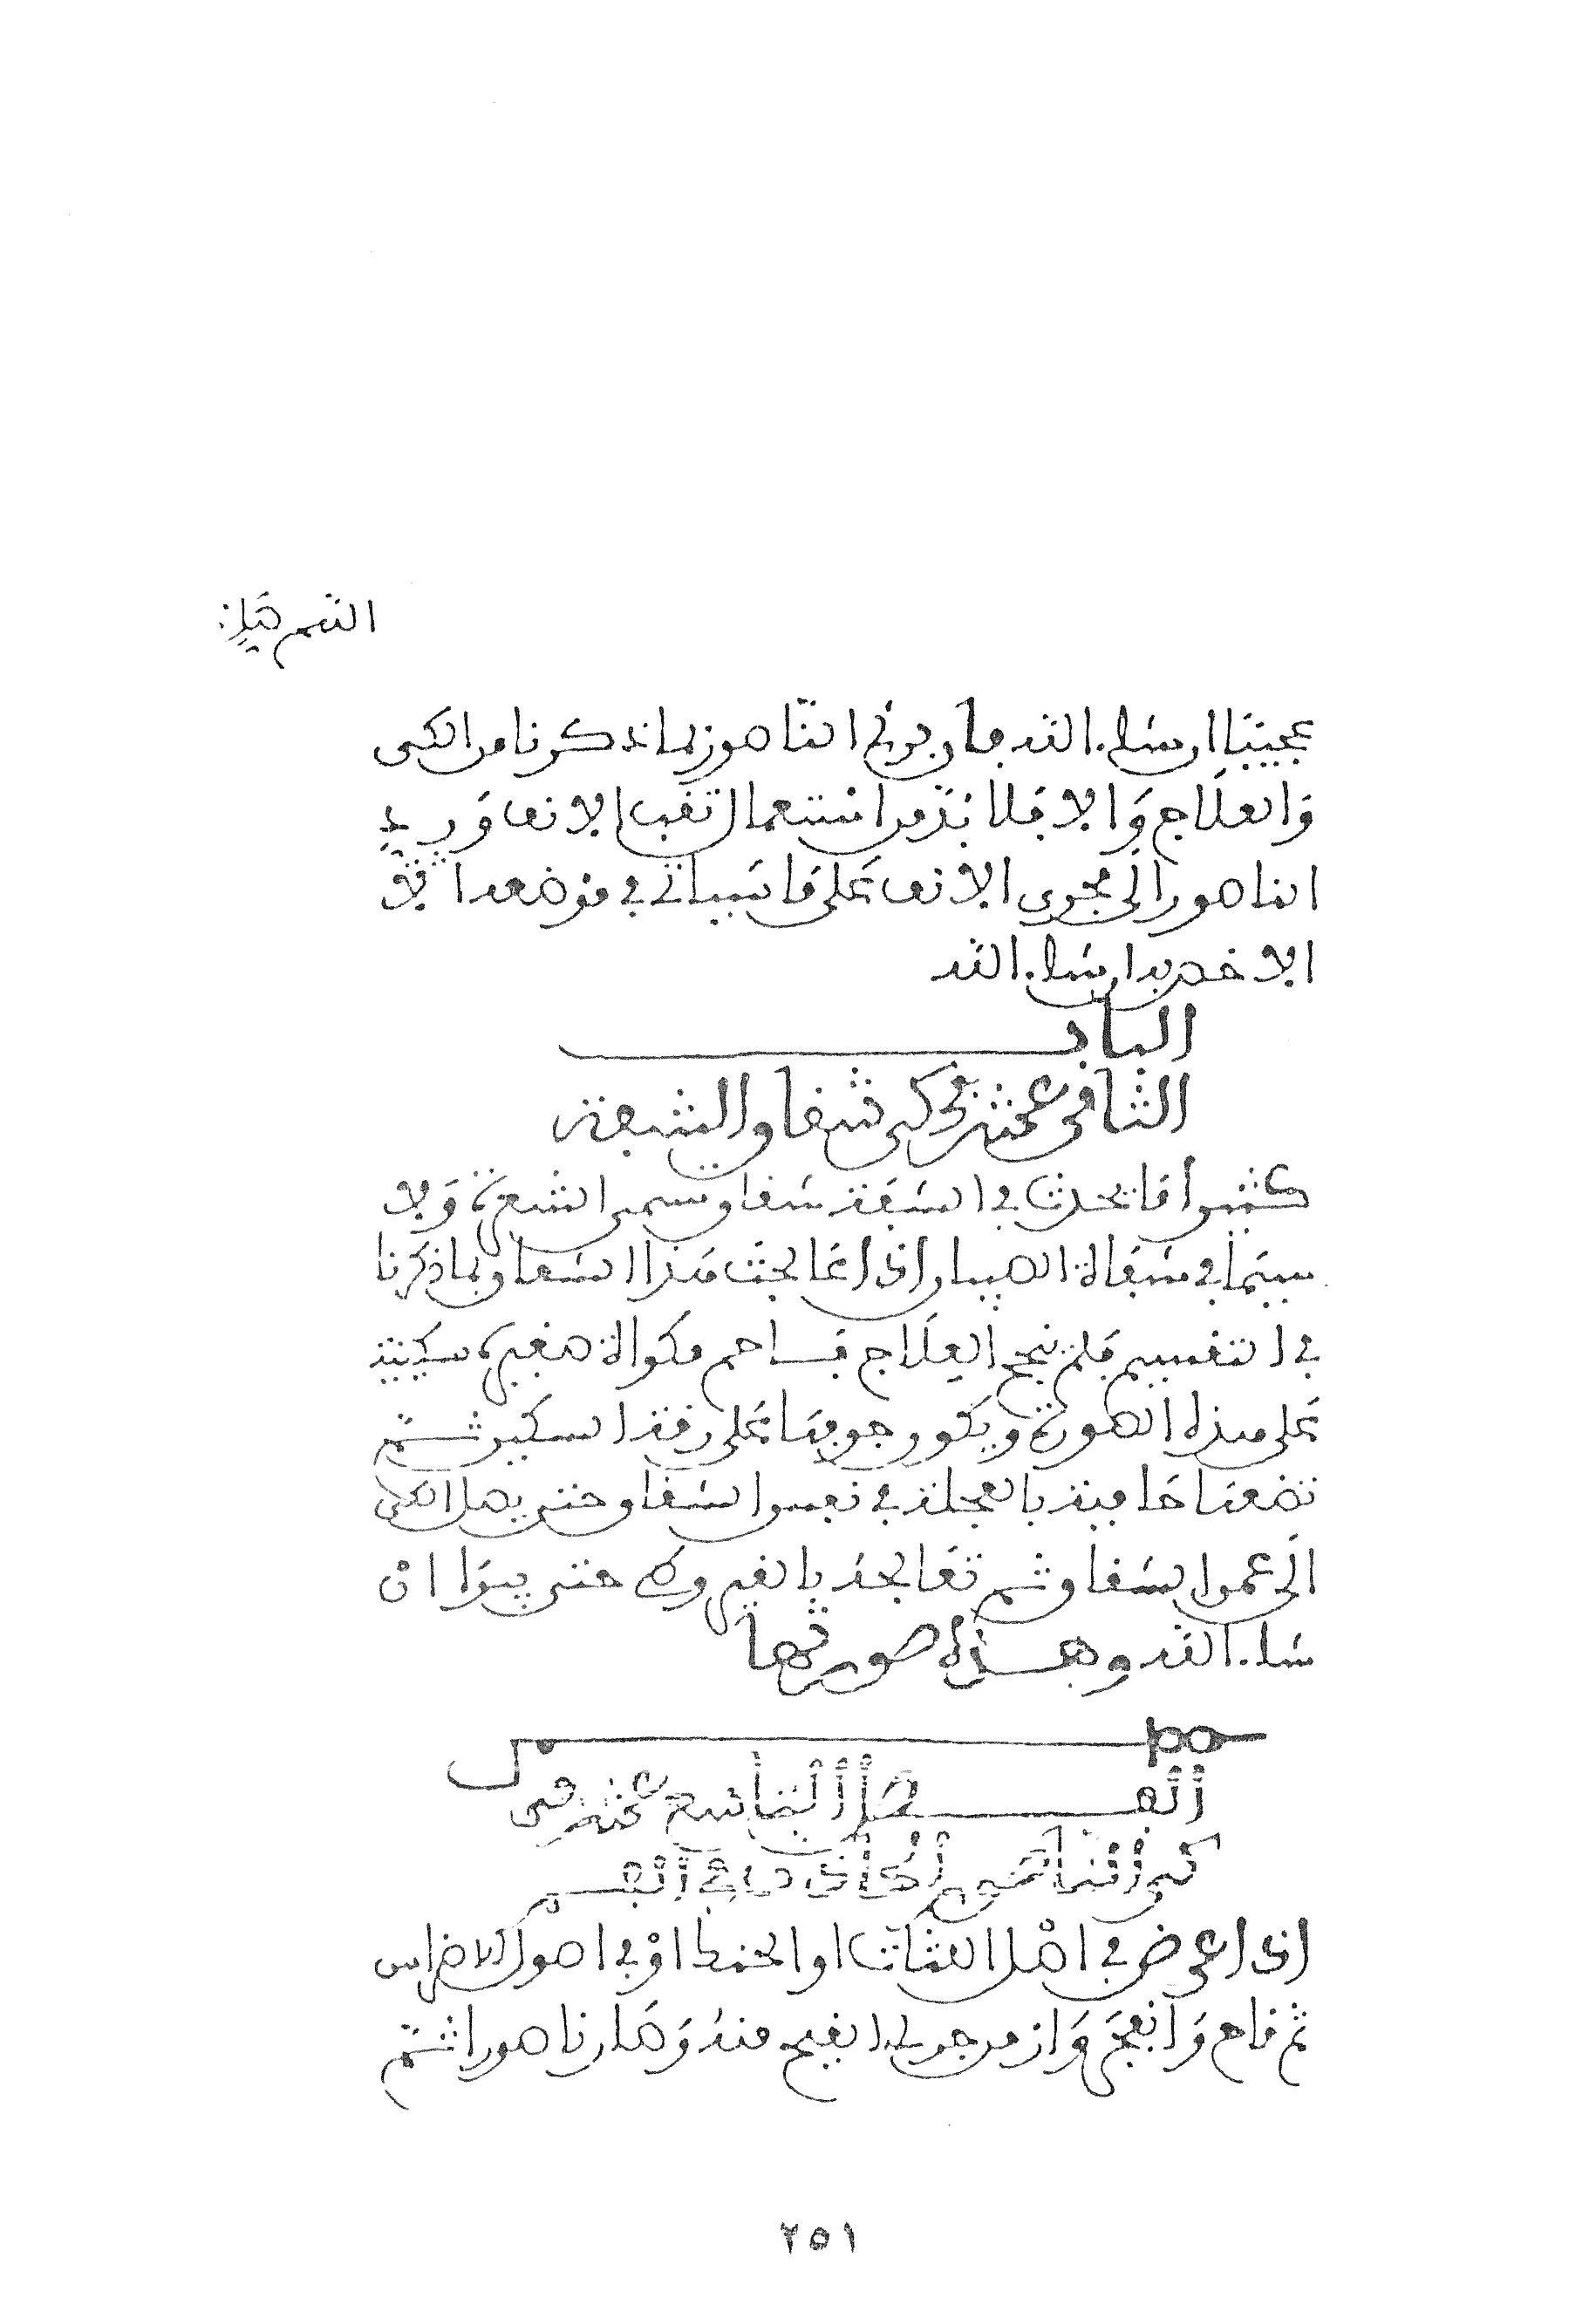 عجيبا ان شاء الله فان برئ الناصور بما ذكرنا من الكى
والعلاج والا فلا بد من استعمال ثقب الانف ورد
الناصور الى مجرى الانف على ما سياتى فى موضعه
ان شاء الله
الباب
الثانى عشر فى كى شقاق الشفة
كثيرا ما يحدث فى الشفة شقاق يسمى الشعرة ولا
سيما فى شفاة الصبيان اذا عالجت هذا الشقاق بما ذكرنا
فى التقسيم فلم ينجح العلاج فاحم مكواة صغيرة سكينية
على هذه الصورة ويكون جوفها على رقة السكين ثم
تضعها حامية بالعجلة فى نفس الشقاق حتى يصل الكى
الى عمق الشقاق ثم تعالجه بالقيروطى حتى يبرا ان
شاء الله وهذه صورتها
الفصل التاسع عشر فى
كى الناصور الحادث فى الفم
اذا عرض فى اصل اللثات او الحنك او فى اصول الاضراس
ثم قاح وانفجر وازمن جرى القيح منه وصار ناصورا ثم
٢٥١